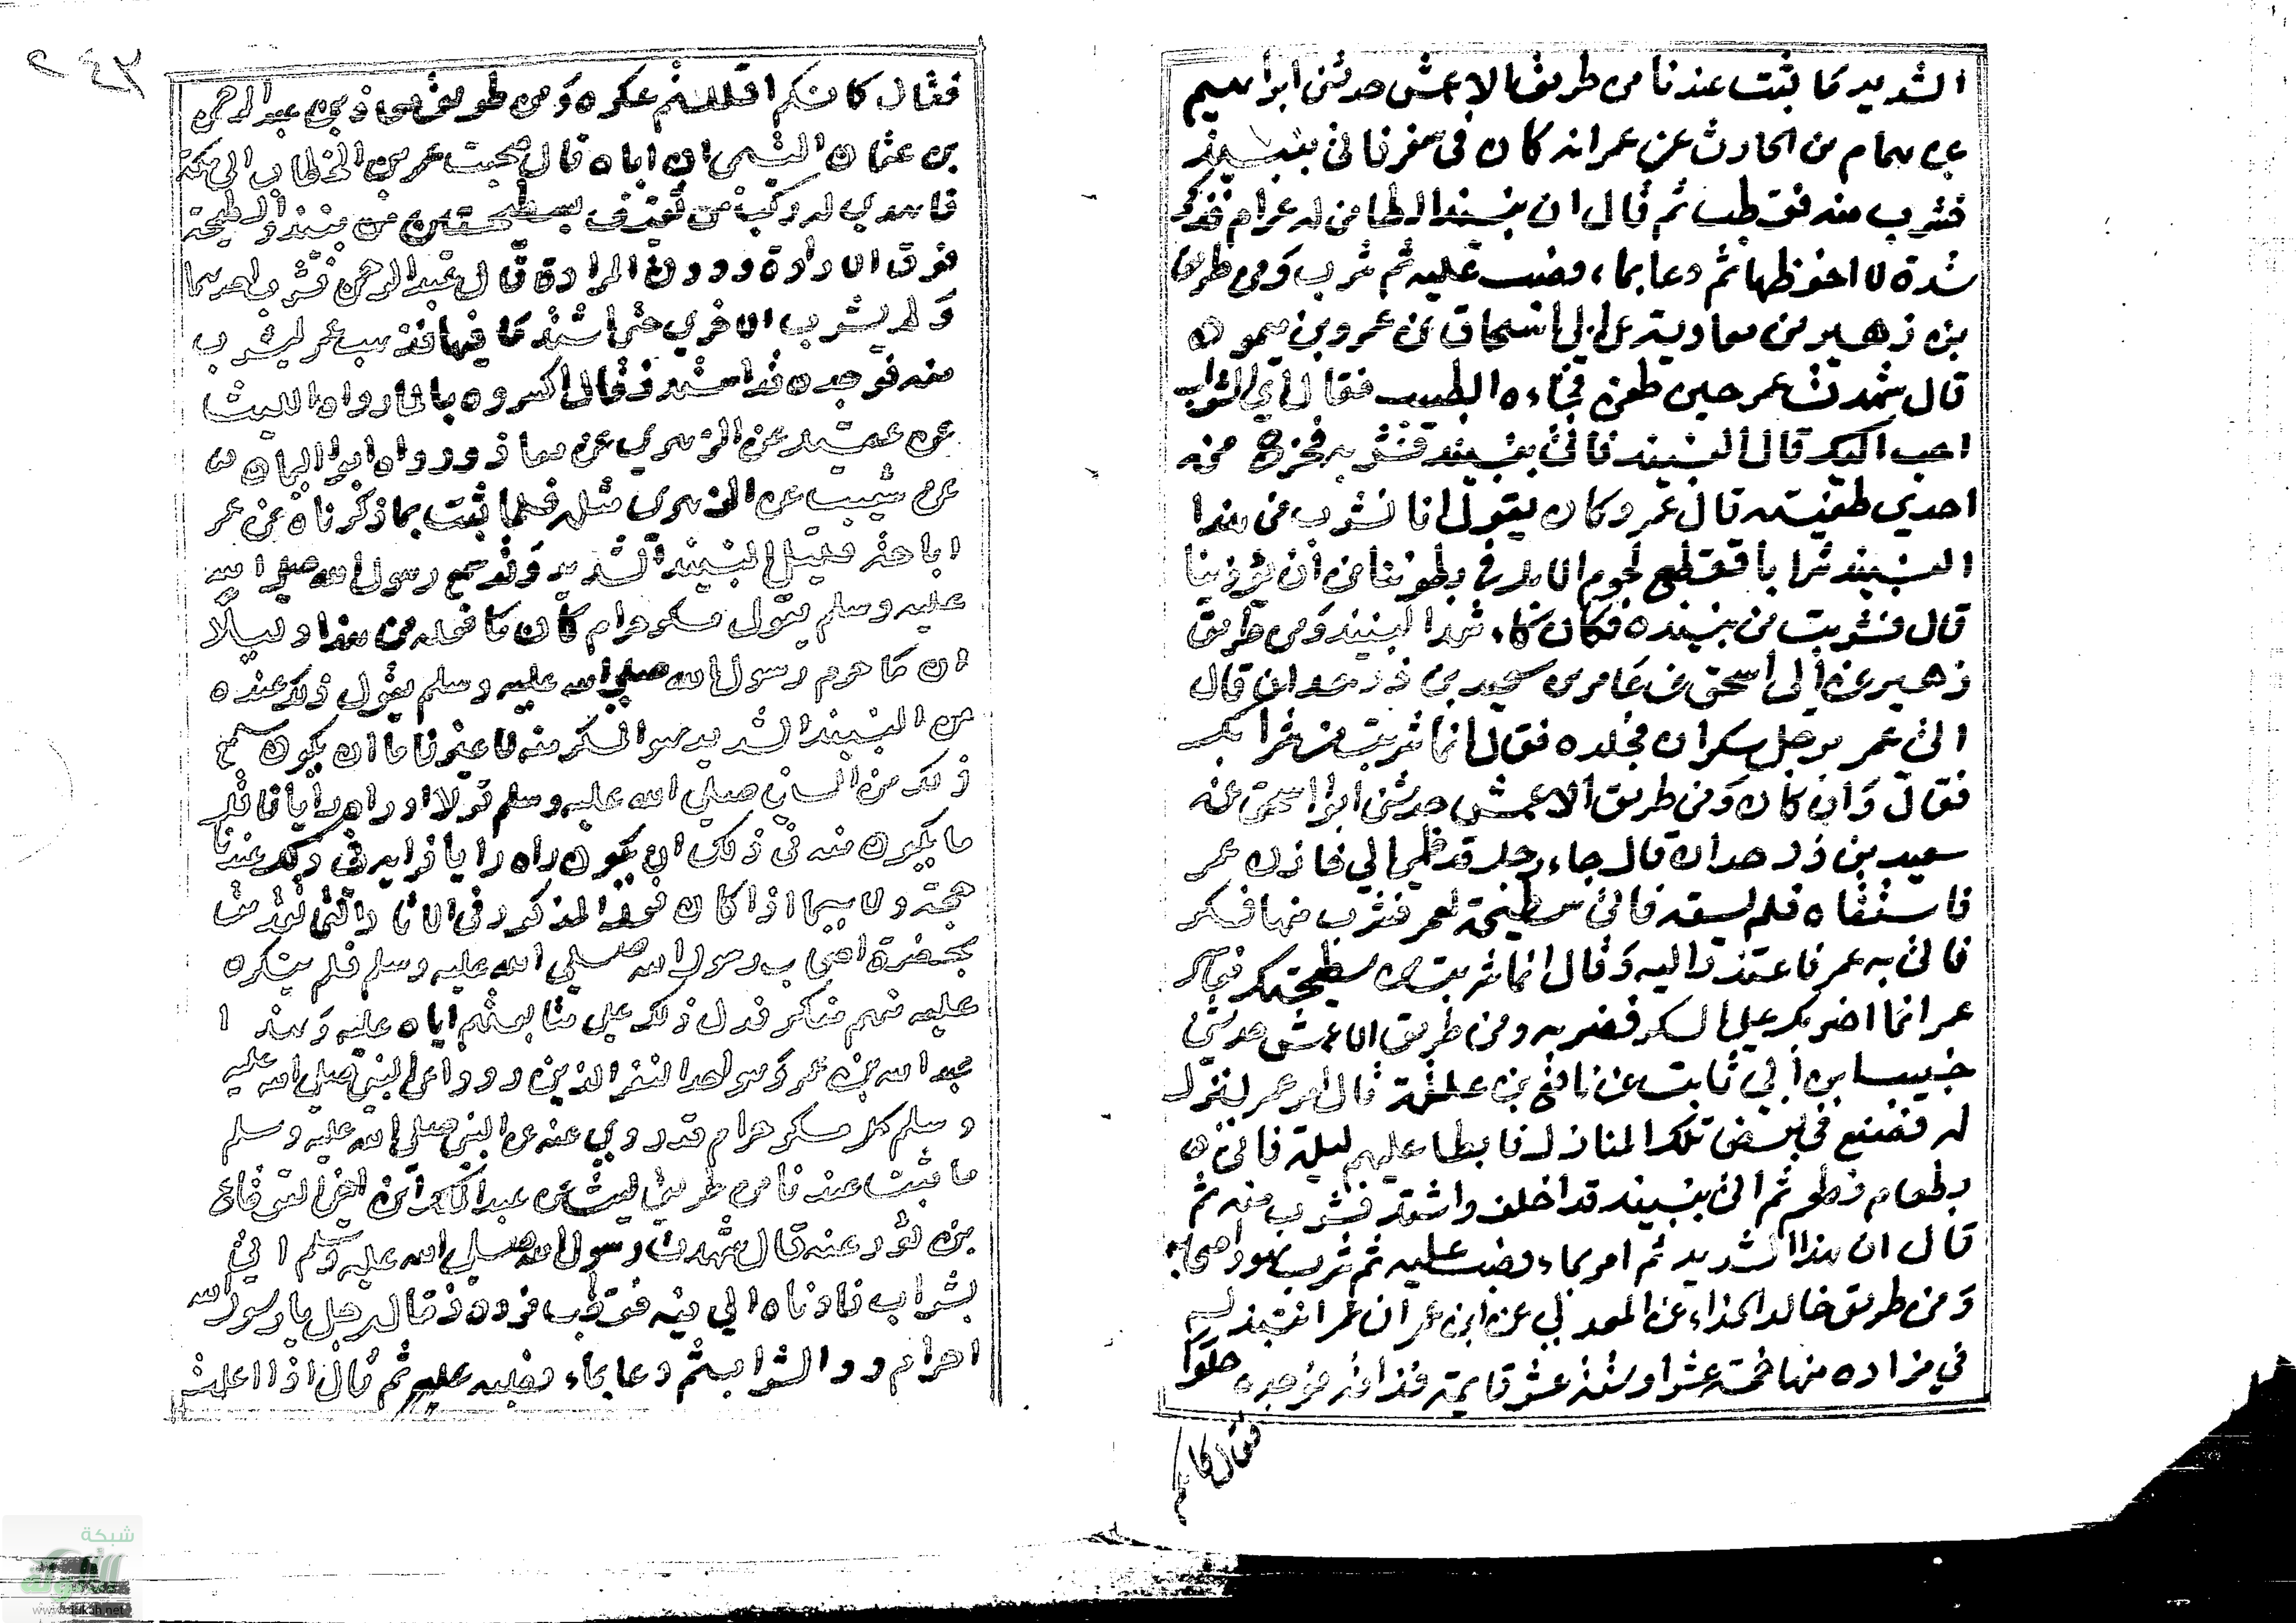 الشديد ما ثبت عندنا من طريق الاعمش حدثنى ابراهيم
عن همام بن الحارث عن عمر انه كان فى سفر فاتى بنبيذ
فشرب منه فقطب ثم قال ان نبيذ الطايف له غرام فذكر
شدة لا احفظها ثم دعا بماء فصب عليه ثم شرب ومن طريق
بن زهير بن معاوية عن ابى اسحاق عن عمرو بن ميمون
قال شهدت عمر حين طعن فجاءه الطبيب فقال اي الشراب
احب اليك قال النبيذ فاتى بنبيذ فشربه فخرج منه
احدي طعنيته قال عمرو كان يقول انا نشرب من هذا
النبيذ شرابا قطع لحوم الابل فى بطوننا من ان يؤذينا
قال فشربت من نبيذه فكان كاشد النبيذ ومن طريق
زهير عن ابى اسحق عن عامر عن سعيد بن ذر حدان قال
اتى عمر برجل سكران فجلده فقال انما شربت من شرابك
فقال وان كان ومن طريق الاعمش حدثنى ابو اسحق عن
سعيد بن ذر حدان قال جاء رجل قد ظما الى خازن عمر
فاستسقاه فلم يسقه فاتى سطيحة لعمر فشرب منها فسكر
فاتى به عمر فاعتذر اليه وقال انما شربت من سطيحتك فقال
عمر انما اضربك على السكر فضربه ومن طريق الاعمش حدثنى
حبيب ابن ابى ثابت عن نافع بن علقمة قال امر عمر بنزل
له فصنع فى بعض تلك المنازل فابطا عليهم ليلة فاتى
بطعام فطعم ثم اتى بنبيذ قد اخلف واشتد فشرب منه ثم
قال ان هذا الشديد ثم امر بماء فصب عليه ثم شرب هو واصحابه
ومن طريق خالد الحذاء عن المعدلى عن ابن عمر ان عمر انتبذ له
فى مزاده فيها خمسة عشر او ستة عشر قايمة فذاقه فوجده حلوا
فقال كانكم
٢٤٣
فقال كانكم اقللتم عكره ومن طريق معاذ بن عبد الرحمن
بن عثمان التيمى ان اباه قال صحبت عمر بن الخطاب الى مكة
فاهدي له ركب من ثقيف سطيحتين من نبيذ والسطيحة
فوق الاداوة ودون المزادة قال عبد الرحمن فشرب احديهما
ولم يشرب الاخري حتى اشتد ما فيها فذهب عمر ليشرب
منه فوجده قد اشتد فقال اكسروه بالماء رواه الليث
عن عقيل عن الزهري عن معاذ ورواه ابو اليمان
عن شعيب عن الزهري مثله فلما ثبت بما ذكرناه عن عمر
اباحة قليل النبيذ الشديد وقد سمع رسول الله صلى الله
عليه وسلم يقول مسكر حرام كان ما فعله من هذا دليلا
ان ما حرم رسول الله صلى الله عليه وسلم بقول ذلك عنده
من النبيذ الشديد هو السكر منه لا غير فاما ان يكون سمع
ذلك من النبي صلى الله عليه وسلم قولا او راه رأيا فان
ما يكون منه فى ذلك ان يكون راه رايا فرايه فى ذلك عندنا
حجة ولا سيما اذا كان فعله المذكور فى الاثار التى
بحضرة اصحاب رسول الله صلى الله عليه وسلم فلم ينكره
عليه منهم منكر فدل ذلك على متابعتهم اياه عليه وهذا
عبد الله بن عمر وهو احد النفر الذين رووا عن النبى صلى الله عليه
وسلم كل مسكر حرام قد روي عنه عن النبى صلى الله عليه وسلم
ما ثبت عندنا من طريق ليث عن عبد الملك ابن اخى القعقاع
بن ثور عنه قال شهدت رسول الله صلى الله عليه وسلم اتى
بشراب فادناه الى فيه فقطب فرده فقال رجل يا رسول الله
احرام هو الشراب ثم دعا بماء فصبه عليه ثم قال اذا اغتلت
شبكة
الألوكة
www.alukah.net